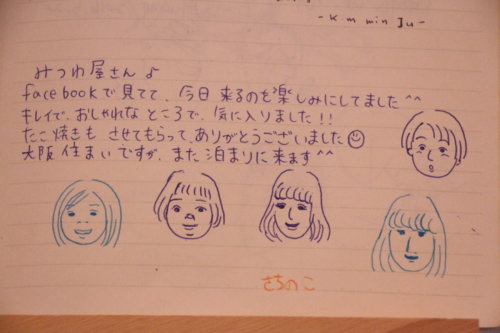 -Kim min Ju-
みつわ屋さん♪
facebookで見てて、今日来るのを楽しみにしてました^^
キレイで、おしゃれなところで、気に入りました!!
たこ焼きもさせてもらって、ありがとうございました☺
大阪住まいですが、また泊まりに来ます^^
さちのこ